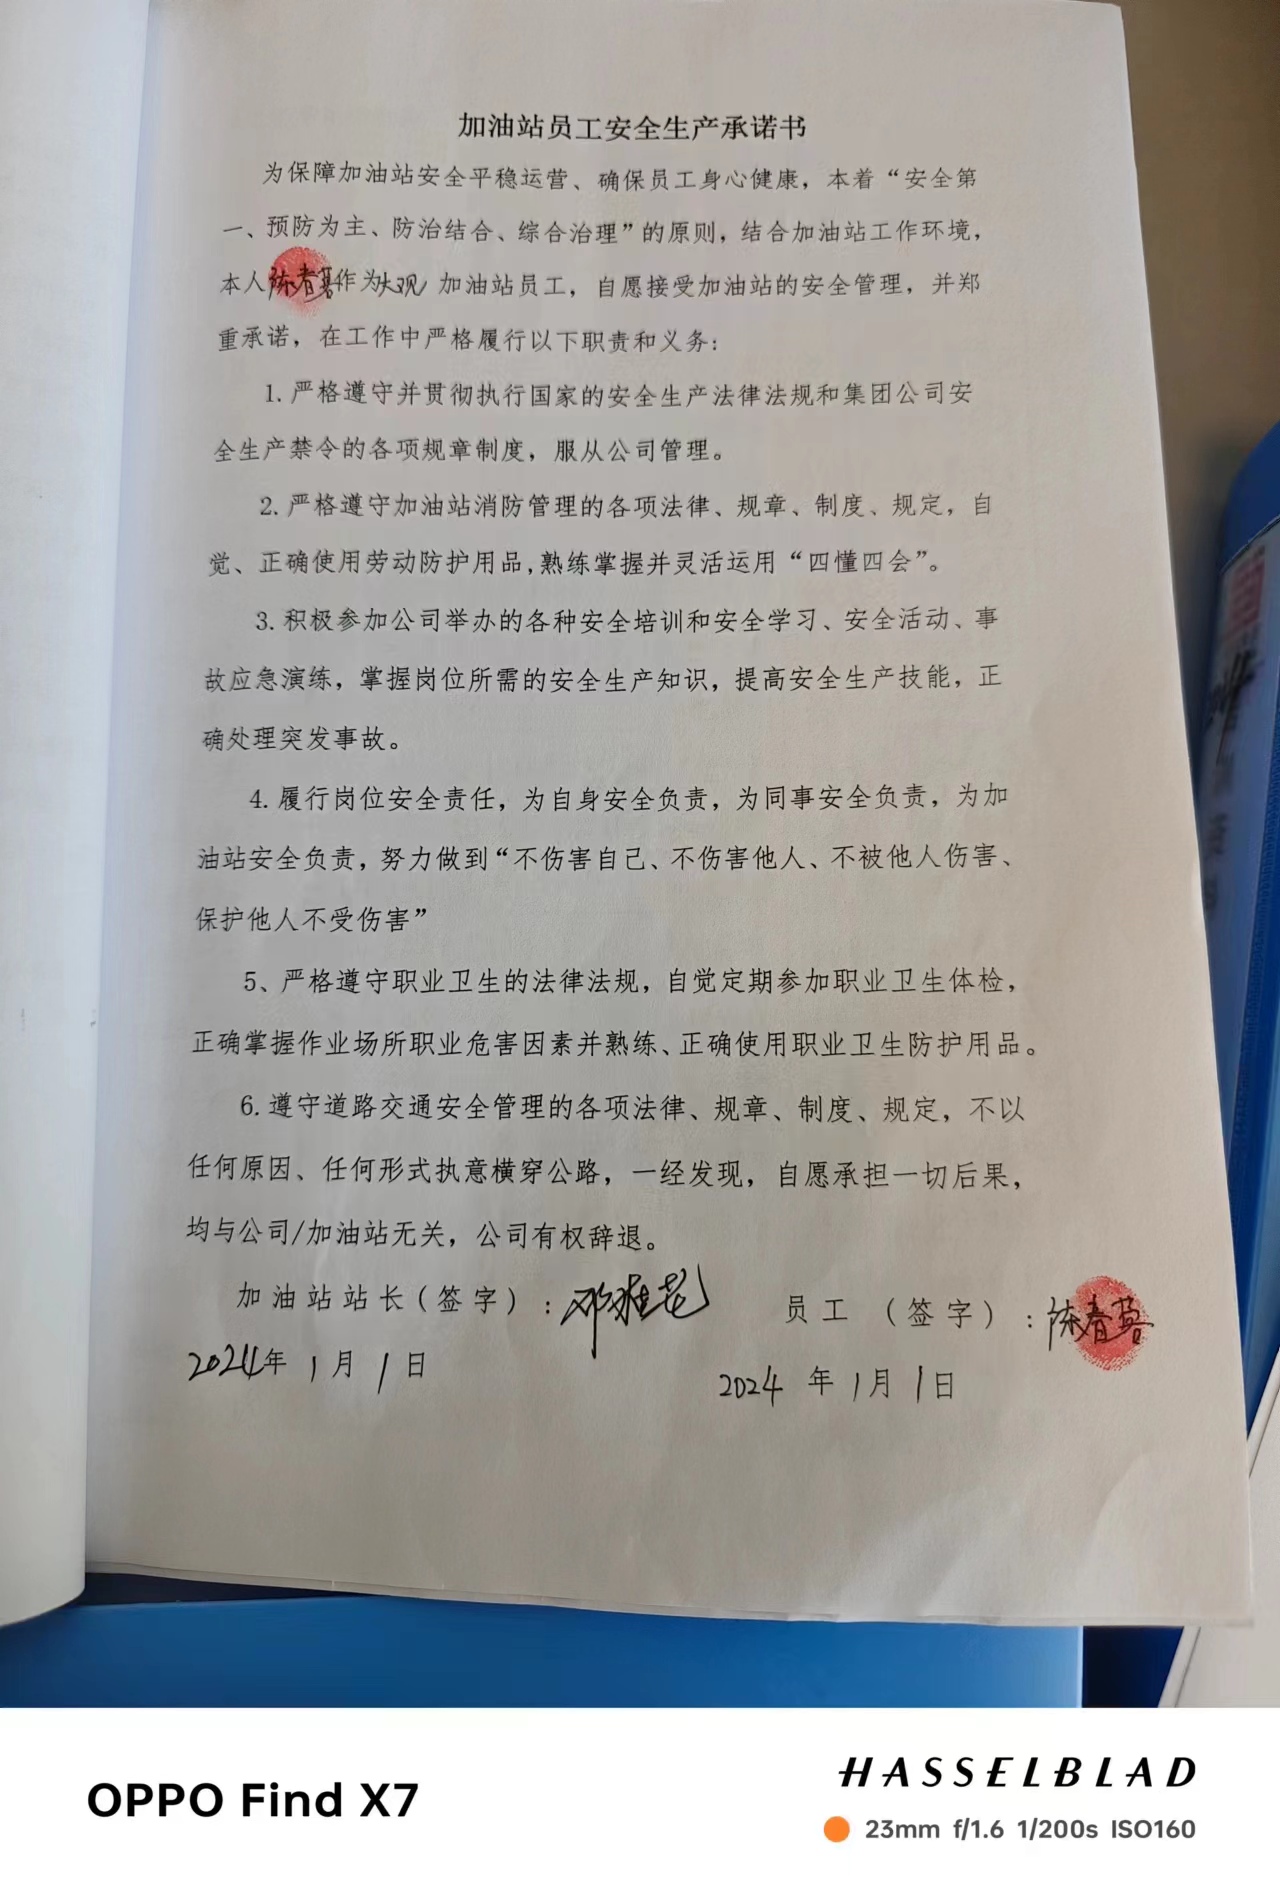 加油站员工安全生产承诺书
为保障加油站安全平稳运营、确保员工身心健康，本着“安全第
一、预防为主、防治结合、综合治理”的原则，结合加油站工作环境，
本人陈春蓉作为大观 加油站员工，自愿接受加油站的安全管理，并郑
重承诺，在工作中严格履行以下职责和义务：
1.严格遵守并贯彻执行国家的安全生产法律法规和集团公司安
全生产禁令的各项规章制度，服从公司管理。
2.严格遵守加油站消防管理的各项法律、规章、制度、规定，自
觉、正确使用劳动防护用品,熟练掌握并灵活运用“四懂四会”。
3.积极参加公司举办的各种安全培训和安全学习、安全活动、事
故应急演练，掌握岗位所需的安全生产知识，提高安全生产技能，正
确处理突发事故。
4.履行岗位安全责任，为自身安全负责，为同事安全负责，为加
油站安全负责，努力做到“不伤害自己、不伤害他人、不被他人伤害、
保护他人不受伤害”
5、严格遵守职业卫生的法律法规，自觉定期参加职业卫生体检，
正确掌握作业场所职业危害因素并熟练、正确使用职业卫生防护用品。
6.遵守道路交通安全管理的各项法律、规章、制度、规定，不以
任何原因、任何形式执意横穿公路，一经发现，自愿承担一切后果，
均与公司/加油站无关，公司有权辞退。
加油站站长（签字）：邓雅花
员工 （签字）：陈春蓉
2024年 1月 1日
2024 年 1月 1日
OPPO Find X7
HASSELBLAD
23mm f/1.6 1/200s ISO160